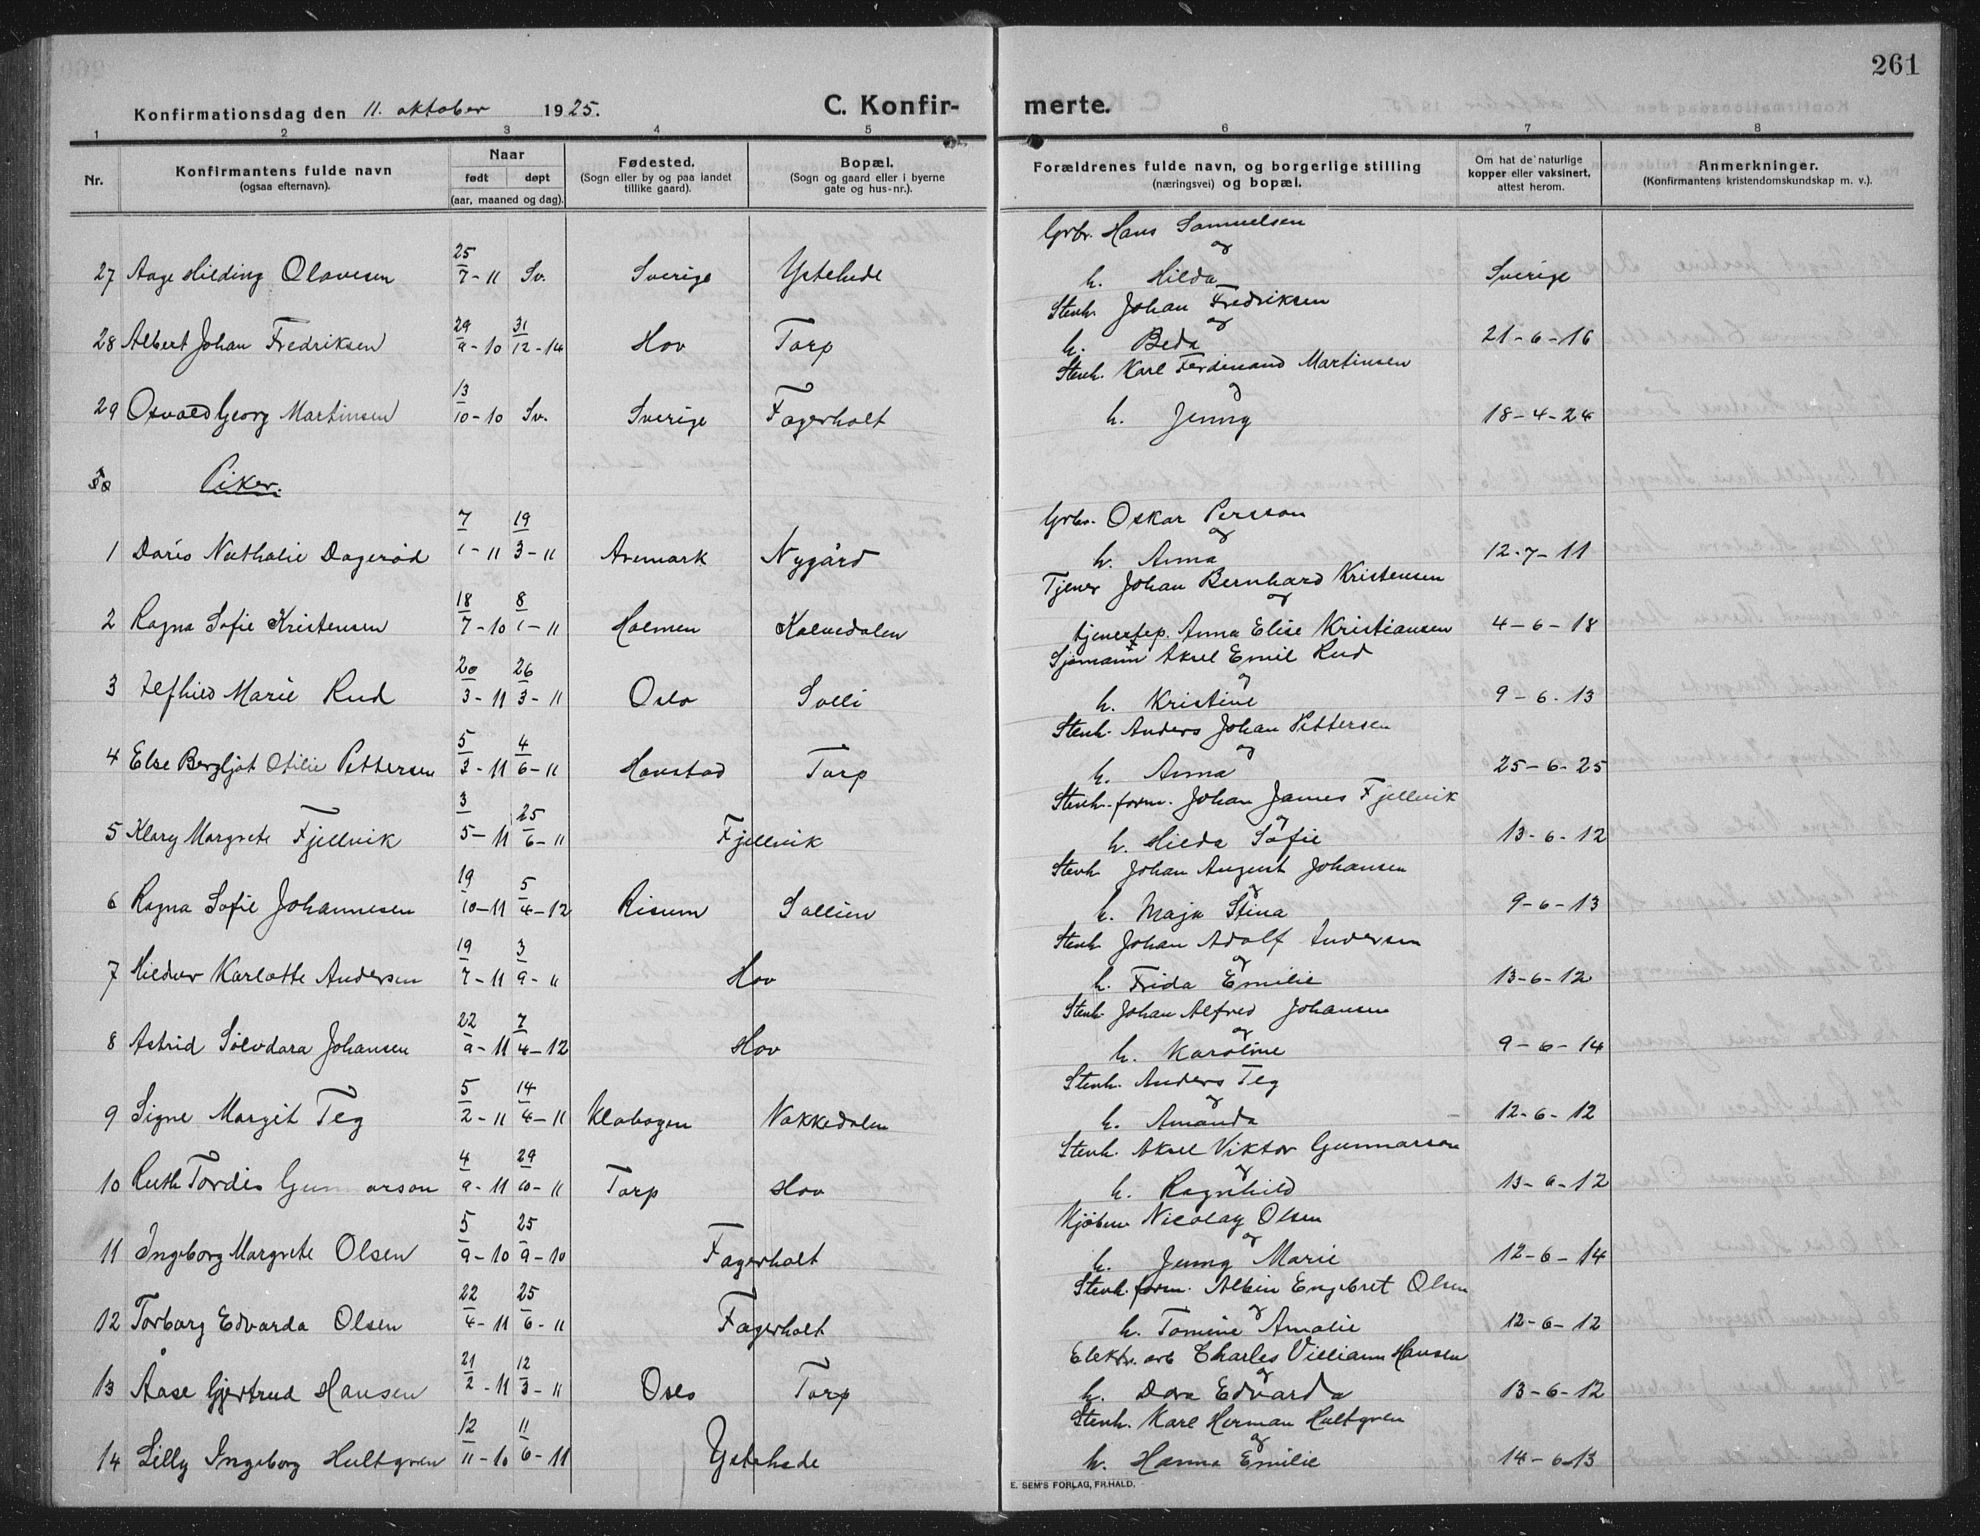 261
Konfirmationsdag den 11. oktober 1925. C. Konfir- merte.
1 2 3 4 5 6 7 8
Nr. Konfirmantens fulde navn (ogsaa efternavn). Naar født døpt (aar, maaned og dag). Fødested. (Sogn eller by og paa landet tillike gaard). Bopæl. (Sogn og gaard eller i byerne gate og hus-nr.). Forældrenes fulde navn, og borgerlige stilling (næringsvei) og bopæl. Om hat de naturlige kopper eller vaksinert, attest herom. Anmerkninger. (Konfirmantens kristendomskundskap m. v.).
Grbr. Hans Samuelsen
og
27 Aage Hilding Olavesen 25/7-11 Sv. Sverige Ystehede h. Hilda Sverige
Stenh. Johan Fredriksen
og
28 Albert Johan Fredriksen 29/9-10 31/12-14 Hov Torp h. Beda 21-6-16
Stenh. Karl Ferdinand Martinsen
og
29 Osvald Georg Martinsen 13/10-10 Sv. Sverige Fagerholt h. Jenny 18-4-24
Piker.
Grbr. Oskar Persson
og
1 Doris Nathalie Dagerød 7/1-11 19/3-11 Aremark Nygård h. Anna 12-7-11
Tjener Johan Bernhard Kristensen
og
2 Ragna Sofie Kristensen 18/7-10 8/1-11 Holmen Kalvedalen tjenerfep. Anna Elise Kristiansen 4-6-18
Sjømann Aksel Emil Rud
og
3 Marie Rud 20/3-11 26/3-11 Oslo Solli h. Kristine 9-6-13
Stenh. Anders Johan Pettersen
og
4 Else Bergljot Otilie Pettersen 5/3-11 4/6-11 Hovstad Torp h. Anna 25-6-25
Stenh.form. Johan James Fjellvik
og
5 Klary Margrete Fjellvik 3/5-11 25/6-11 Fjellvik h. Hilda Sofie 13-6-12
Stenh. Johan August Johansen
og
6 Ragna Sofie Johannesen 19/10-11 5/4-12 Risum Sollien h. Maja Stina 9-6-13
Stenh. Johan Adolf Andersen
og
7 Hildur Karlotte Andersen 19/7-11 3/9-11 Hov h. Frida Emilie 13-6-12
Stenh. Johan Alfred Johansen
og
8 Astrid Solvdara Johansen 22/9-11 7/4-12 Hov h. Karoline 9-6-14
Stenh. Anders Teg
og
9 Signe Margit Teg 5/2-11 14/4-11 Klabogen Nakkedalen h. Amanda 12-6-12
Stenh. Aksel Viktor Gunnarson
og
10 Ruth Tordis Gunnarson 4/9-11 29/10-11 Torp Hov h. Ragnhild 13-6-12
Kjøbm. Nicolay Olsen
og
11 Ingeborg Margrete Olsen 5/9-10 25/9-10 Fagerholt h. Jenny Marie 12-6-14
Stenh.form. Albin Engebret Olsen
og
12 Torborg Edvarda Olsen 22/4-11 25/6-11 Fagerholt h. Tomine Amalie 12-6-12
Elektr. arb Charles Villiam Hansen
og
13 Åase Gjertrud Hansen 21/2-11 12/3-11 Oslo Torp h. Dora Edvarda 13-6-12
Stenh. Karl Herman Hultgren
og
14 Lilly Ingeborg Hultgren 12/11-10 11/6-11 Ystehede h. Hanna Emilie 14-6-13
E. SEM'S FORLAG, FR.HALD.